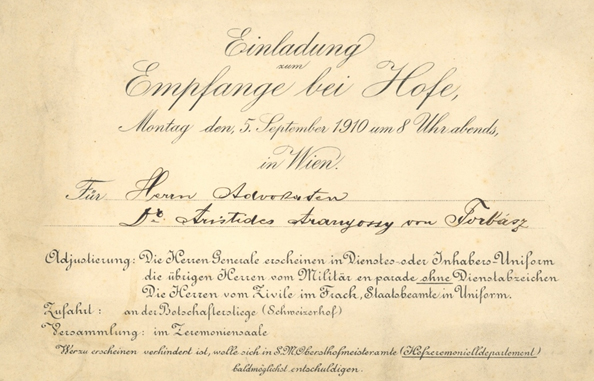 Einladung
zum
Empfange bei Hofe,
Montag den, 5. September 1910 um 8 Uhr abends,
in Wien.
Für Herrn Advokaten
Dr. Aristides Aranyossy von Torbász
Adjustierung: Die Herren Generale erscheinen in Dienstes- oder Inhabers-Uniform
die übrigen Herren vom Militär en parade ohne Dienstabzeichen
Die Herren vom Zivile im Frack, Staatsbeamte in Uniform.
Zufahrt: an der Botschafterstiege (Schweizerhof)
Versammlung: im Zeremoniensaale
Werzu erscheinen verhindert ist, wolle sich in S.M. Obersthofmeisteramte (Hofzeremonielldepartement)
baldmöglichst entschuldigen.